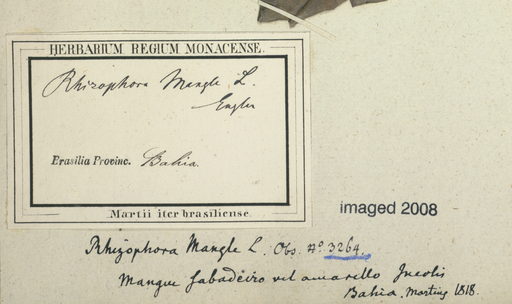 HERBARIUM REGIUM MONACENSE.
Rhizophora Mangle L.
Engler
Brasilia Provinc. Bahia.
Martii iter brasiliense.
imaged 2008
Rhizophora Mangle L. Obs. No 3264.
Mangue vel amarello Incolis
Bahia. Martius 1818.